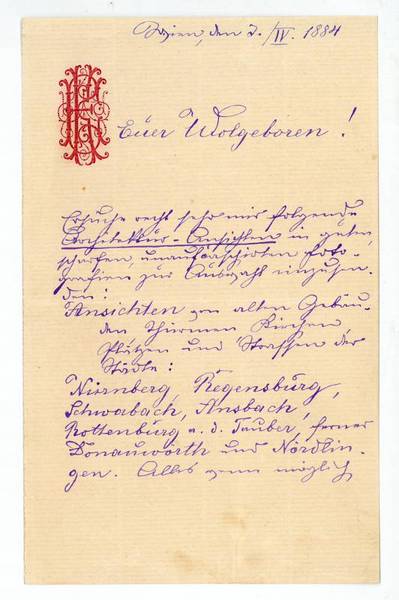 Wien, den 3./IV. 1884
Euer Wolgeboren!
Ersuche recht sehr mir folgende
Architektur-Ansichten in guten
scharfen, unaufcaschirten Foto-
grafien zur Auswahl einzusen-
den:
Ansichten von alten Gebäu-
den Thürmen Kirchen,
Plätzen und Strassen der
Städte:
Nürnberg Regensburg,
Schwabach, Ansbach,
Rottenburg a. d. Tauber, ferner
Donauwörth und Nördlin-
gen. Alles wenn möglich